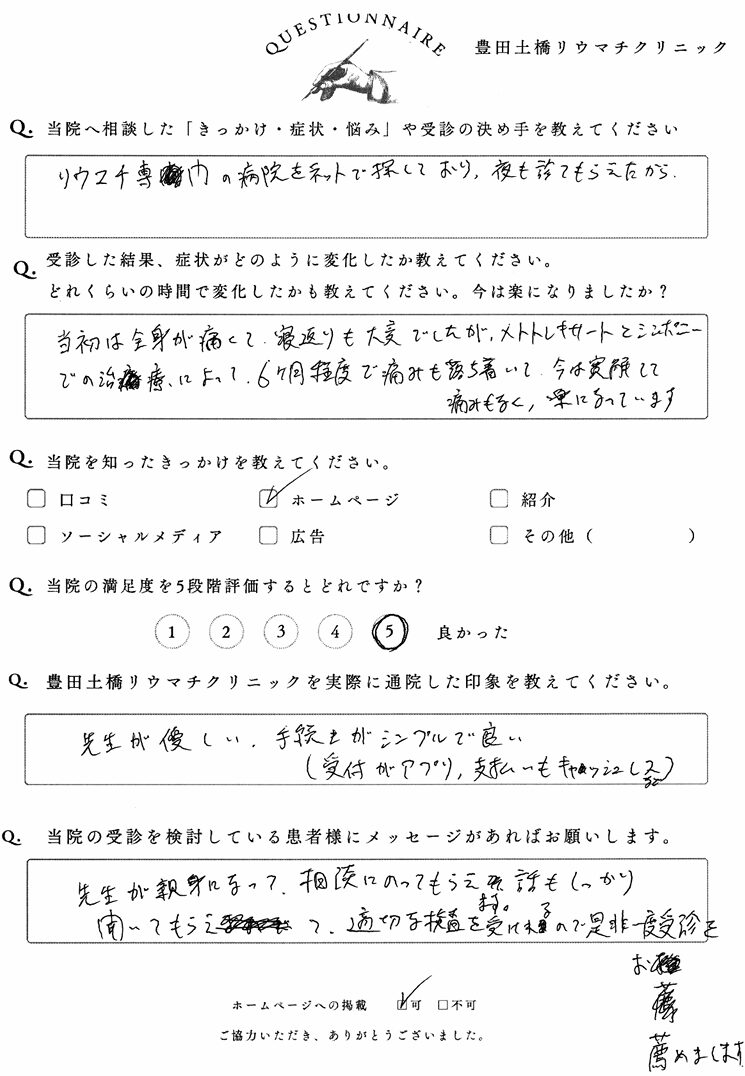 QUESTIONNAIRE
豊田土橋リウマチクリニック
Q. 当院へ相談した「きっかけ・症状・悩み」や受診の決め手を教えてください
リウマチ専門の病院をネットで探しており,夜も診てもらえたから.
Q. 受診した結果、症状がどのように変化したか教えてください。
どれくらいの時間で変化したかも教えてください。今は楽になりましたか?
当初は全身が痛くて.寝返りも大変でしたが,メトトレキサートとシンポニー
での治療によって.6ヶ月程度で痛みも落ち着いて.今は寛解して
痛みもなく,楽になっています
Q. 当院を知ったきっかけを教えてください。
口コミ ホームページ 紹介
ソーシャルメディア 広告 その他( )
Q. 当院の満足度を5段階評価するとどれですか?
1 2 3 4 5 良かった
Q. 豊田土橋リウマチクリニックを実際に通院した印象を教えてください。
先生が優しい.手続きがシンプルで良い
(受付がアプリ,支払いもキャッシュレス など)
Q. 当院の受診を検討している患者様にメッセージがあればお願いします。
先生が親身になって.相談にのってもらえます。話もしっかり
聞いてもらえて.適切な検査を受けれるので是非一度受診を
お
薦めします
ホームページへの掲載 可 不可
ご協力いただき、ありがとうございました。